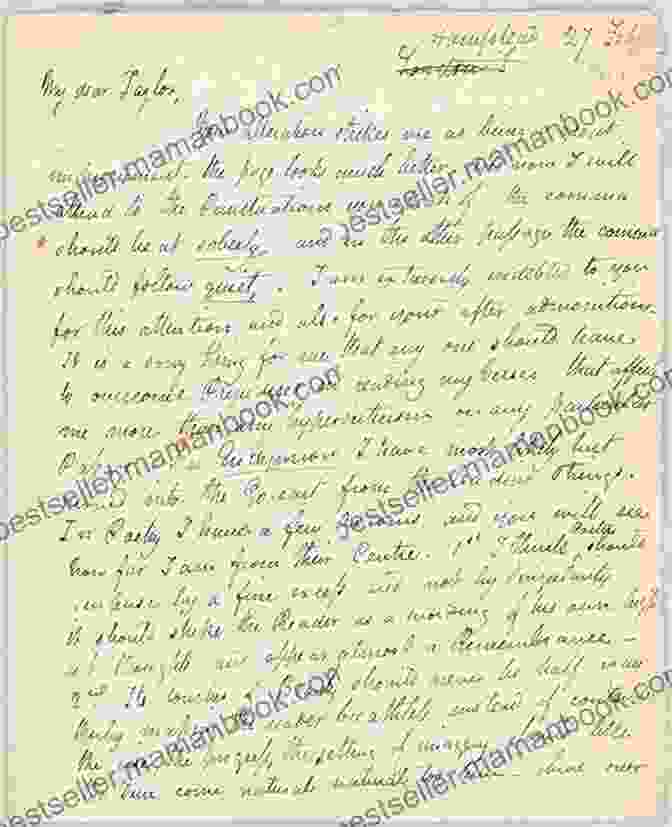 Hampstead 27 Feby
My dear Taylor,
Your alteration strikes me as being a great
improvement. the page looks much better. And now I will
attend to the Punctuations you speak of the comma
should be at soberly, and in the other passage the comma
should follow quiet,. I am extremely indebted to you
for this attention and also for your after admonitions
It is a sorry thing for me that any one should have
to overcome Prejudices in reading my Verses that affects
me more than any hypercriticism on any particular
In Endymion I have most likely but
moved into the Go-cart from the leading strings.
In Poetry I have a few Axioms, and you will see
how far I am from their Centre. 1st I think Poetry should
surprise by a fine excess and not by Singularity
it should strike the Reader as a wording of his own high
thoughts and appear almost a Remembrance—
Its touches of Beauty should never be half way
thereby making the reader breathless instead of
the rise, the progress, the setting of imagery should like
the Sun come natural natural too shine over
bestseller.mamanbook.com
bestseller.mamanbook.com
bestseller.mamanbook.com
bestseller.mamanbook.com
bestseller.mamanbook.com
bestseller.mamanbook.com